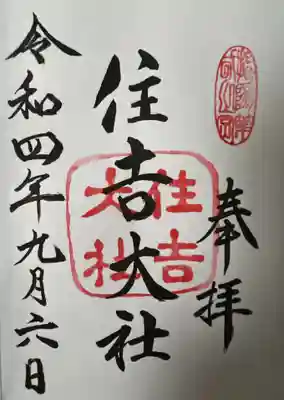 奉拝
住吉大社
住吉
大社
令和四年九月六日